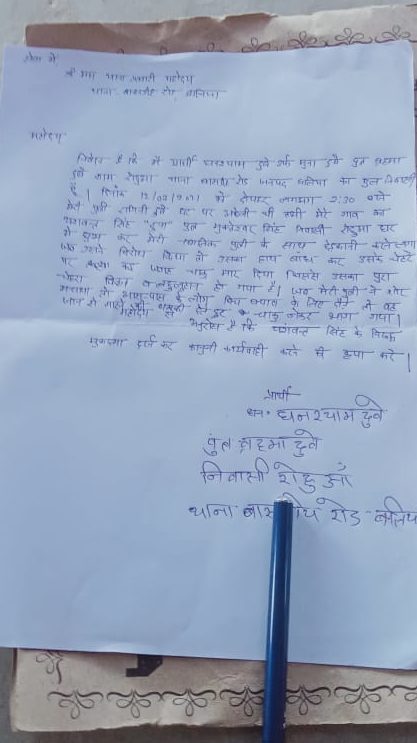 सेवा में
श्री मान थाना प्रभारी महोदय
थाना बांसडीह रोड, बलिया
महोदय
निवेदन है कि मैं प्रार्थी घनश्याम दुबे उर्फ मुन्ना दुबे पुत्र
दुबे ग्राम रोहुआ थाना बांसडीह रोड जनपद बलिया का मूल निवासी
है। दिनांक को दोपहर लगभग 2:30 बजे
मेरी पुत्री घर पर अकेली थी तभी मेरे गांव का
सिंह पुत्र सिंह निवासी रोहुआ घर
में घुस कर मेरी पुत्री के साथ छेड़खानी करने लगा
जब उसने विरोध किया तो उसका हाथ बांध कर उसके चेहरे
पर जगह चाकू मार दिया जिससे उसका पूरा
चेहरा व लहूलुहान हो गया है। जब मेरी पुत्री ने शोर
तो के लोग बीच बचाव के लिए दौड़े तो वह
जान से मारने की धमकी देते हुए चाकू लेकर भाग गया।
महोदय से अनुरोध है कि सिंह के खिलाफ
मुकदमा दर्ज कर कानूनी कार्यवाही करने की कृपा करें।
प्रार्थी
घनश्याम दुबे
पुत्र ब्रह्मा दुबे
निवासी रोहुआँ
थाना रोड - बलिया